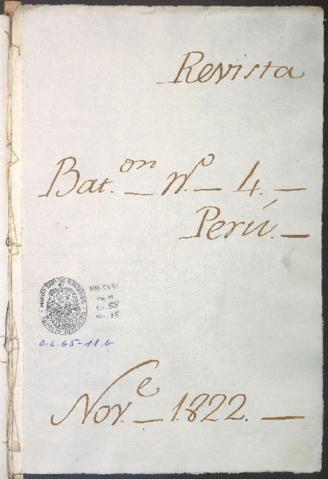 Revista
Bat.on Nº 4.
Perú.
O.L. 65-116
Nov.e 1822.